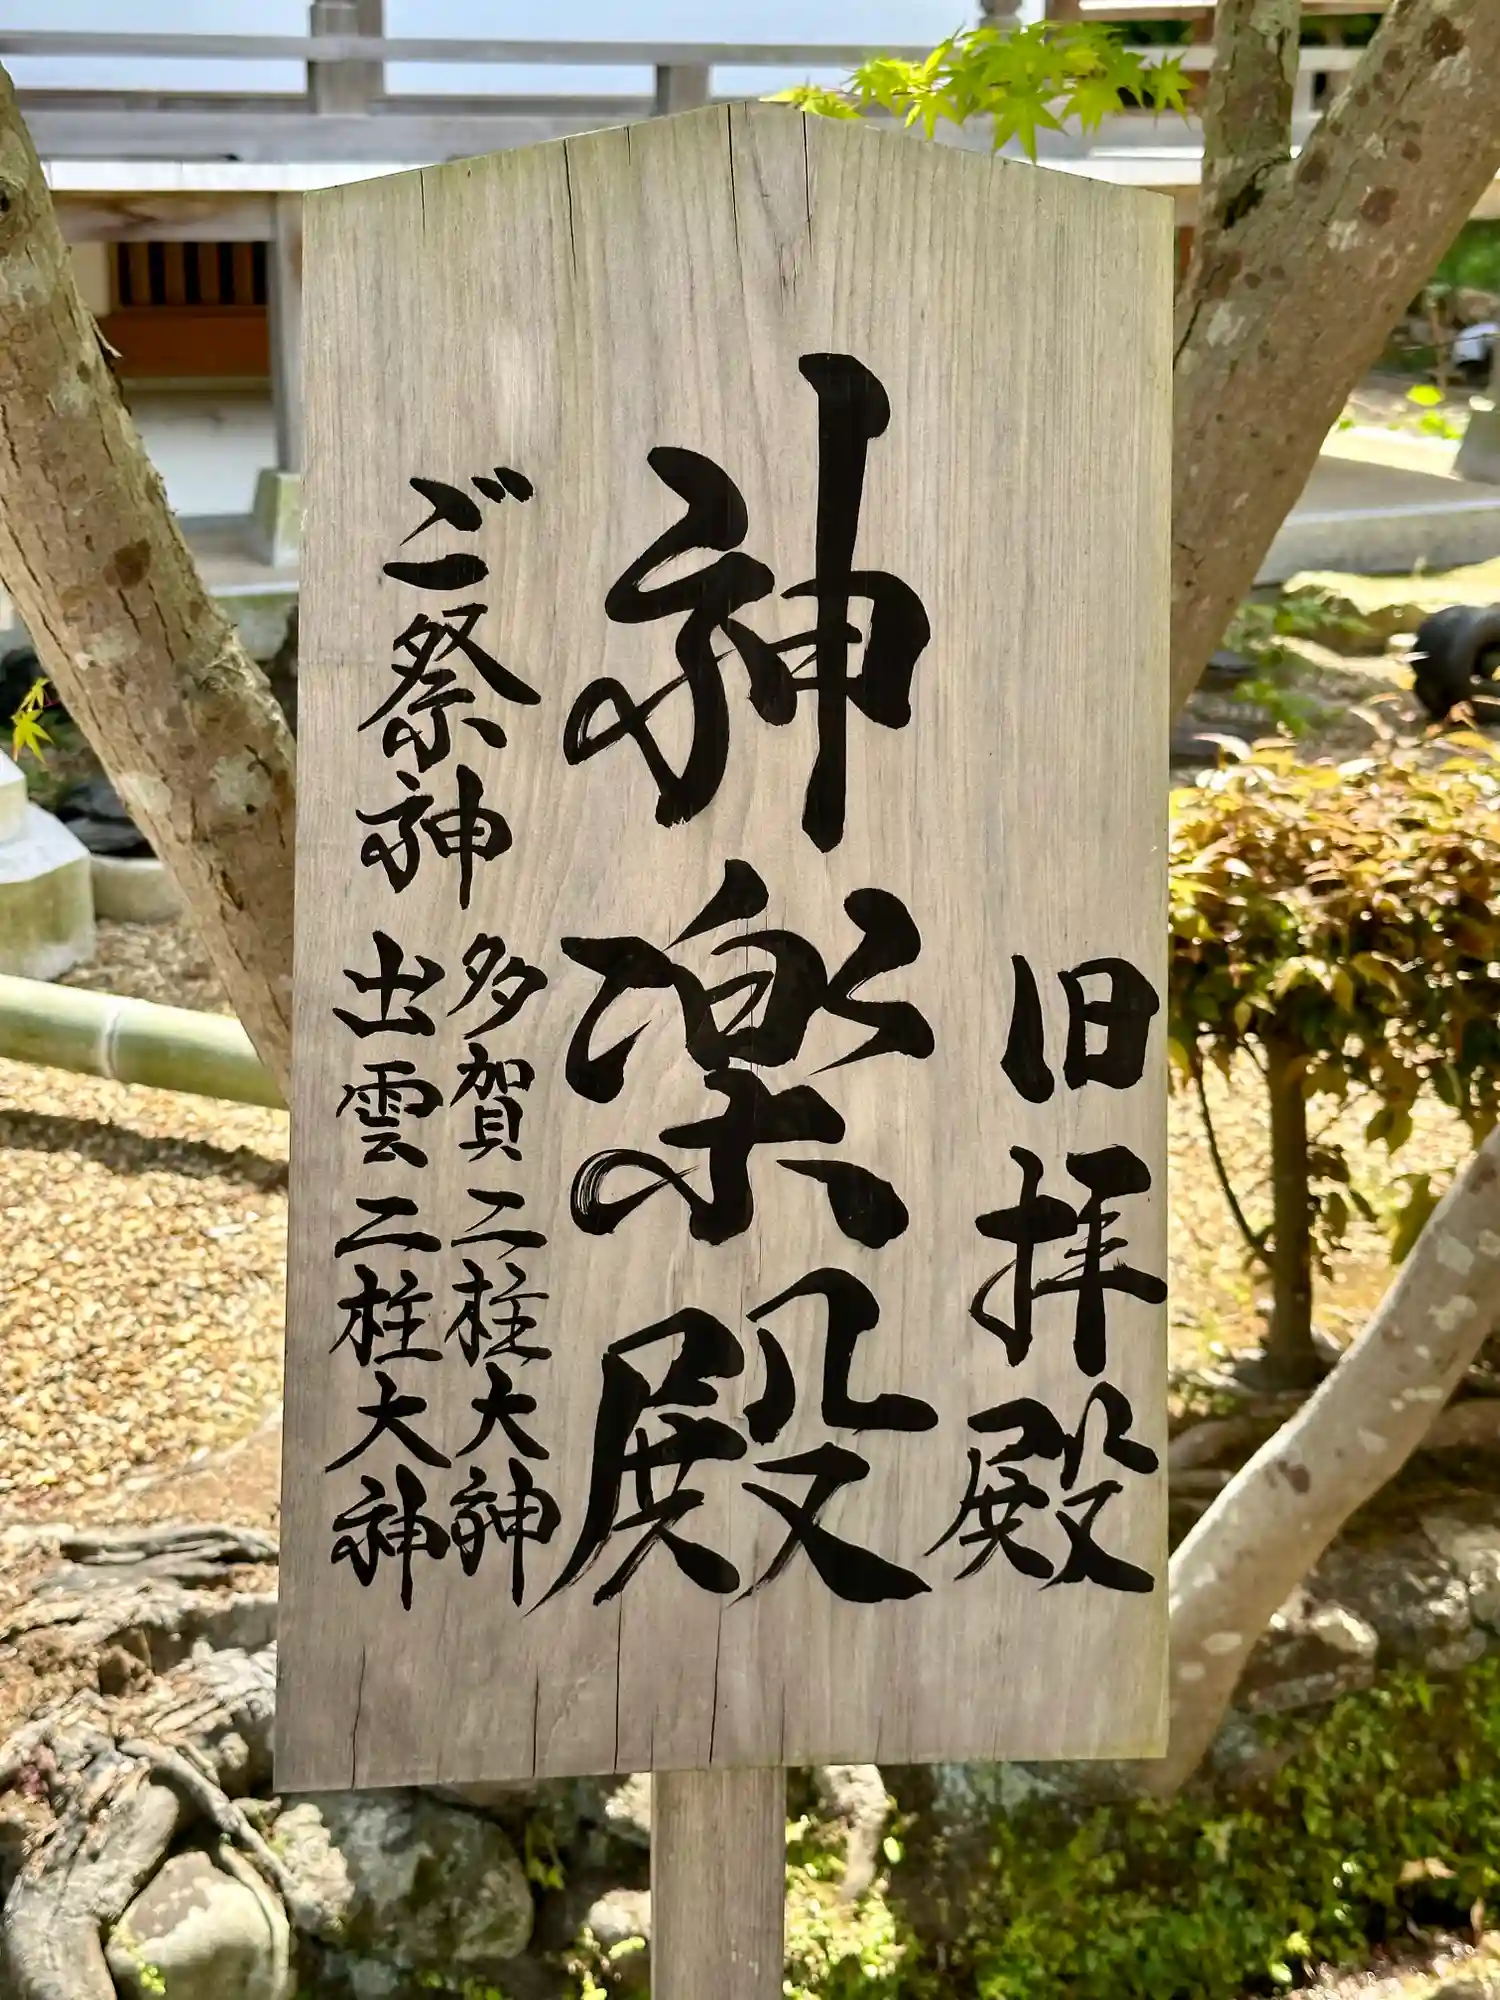 旧拝殿
神楽殿
ご祭神
多賀二柱大神
出雲二柱大神